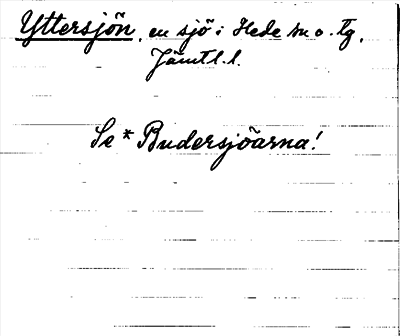 Yttersjön, en sjö i Hede sn o. tg,
Jämtl. l.
Se * Budersjöarna!